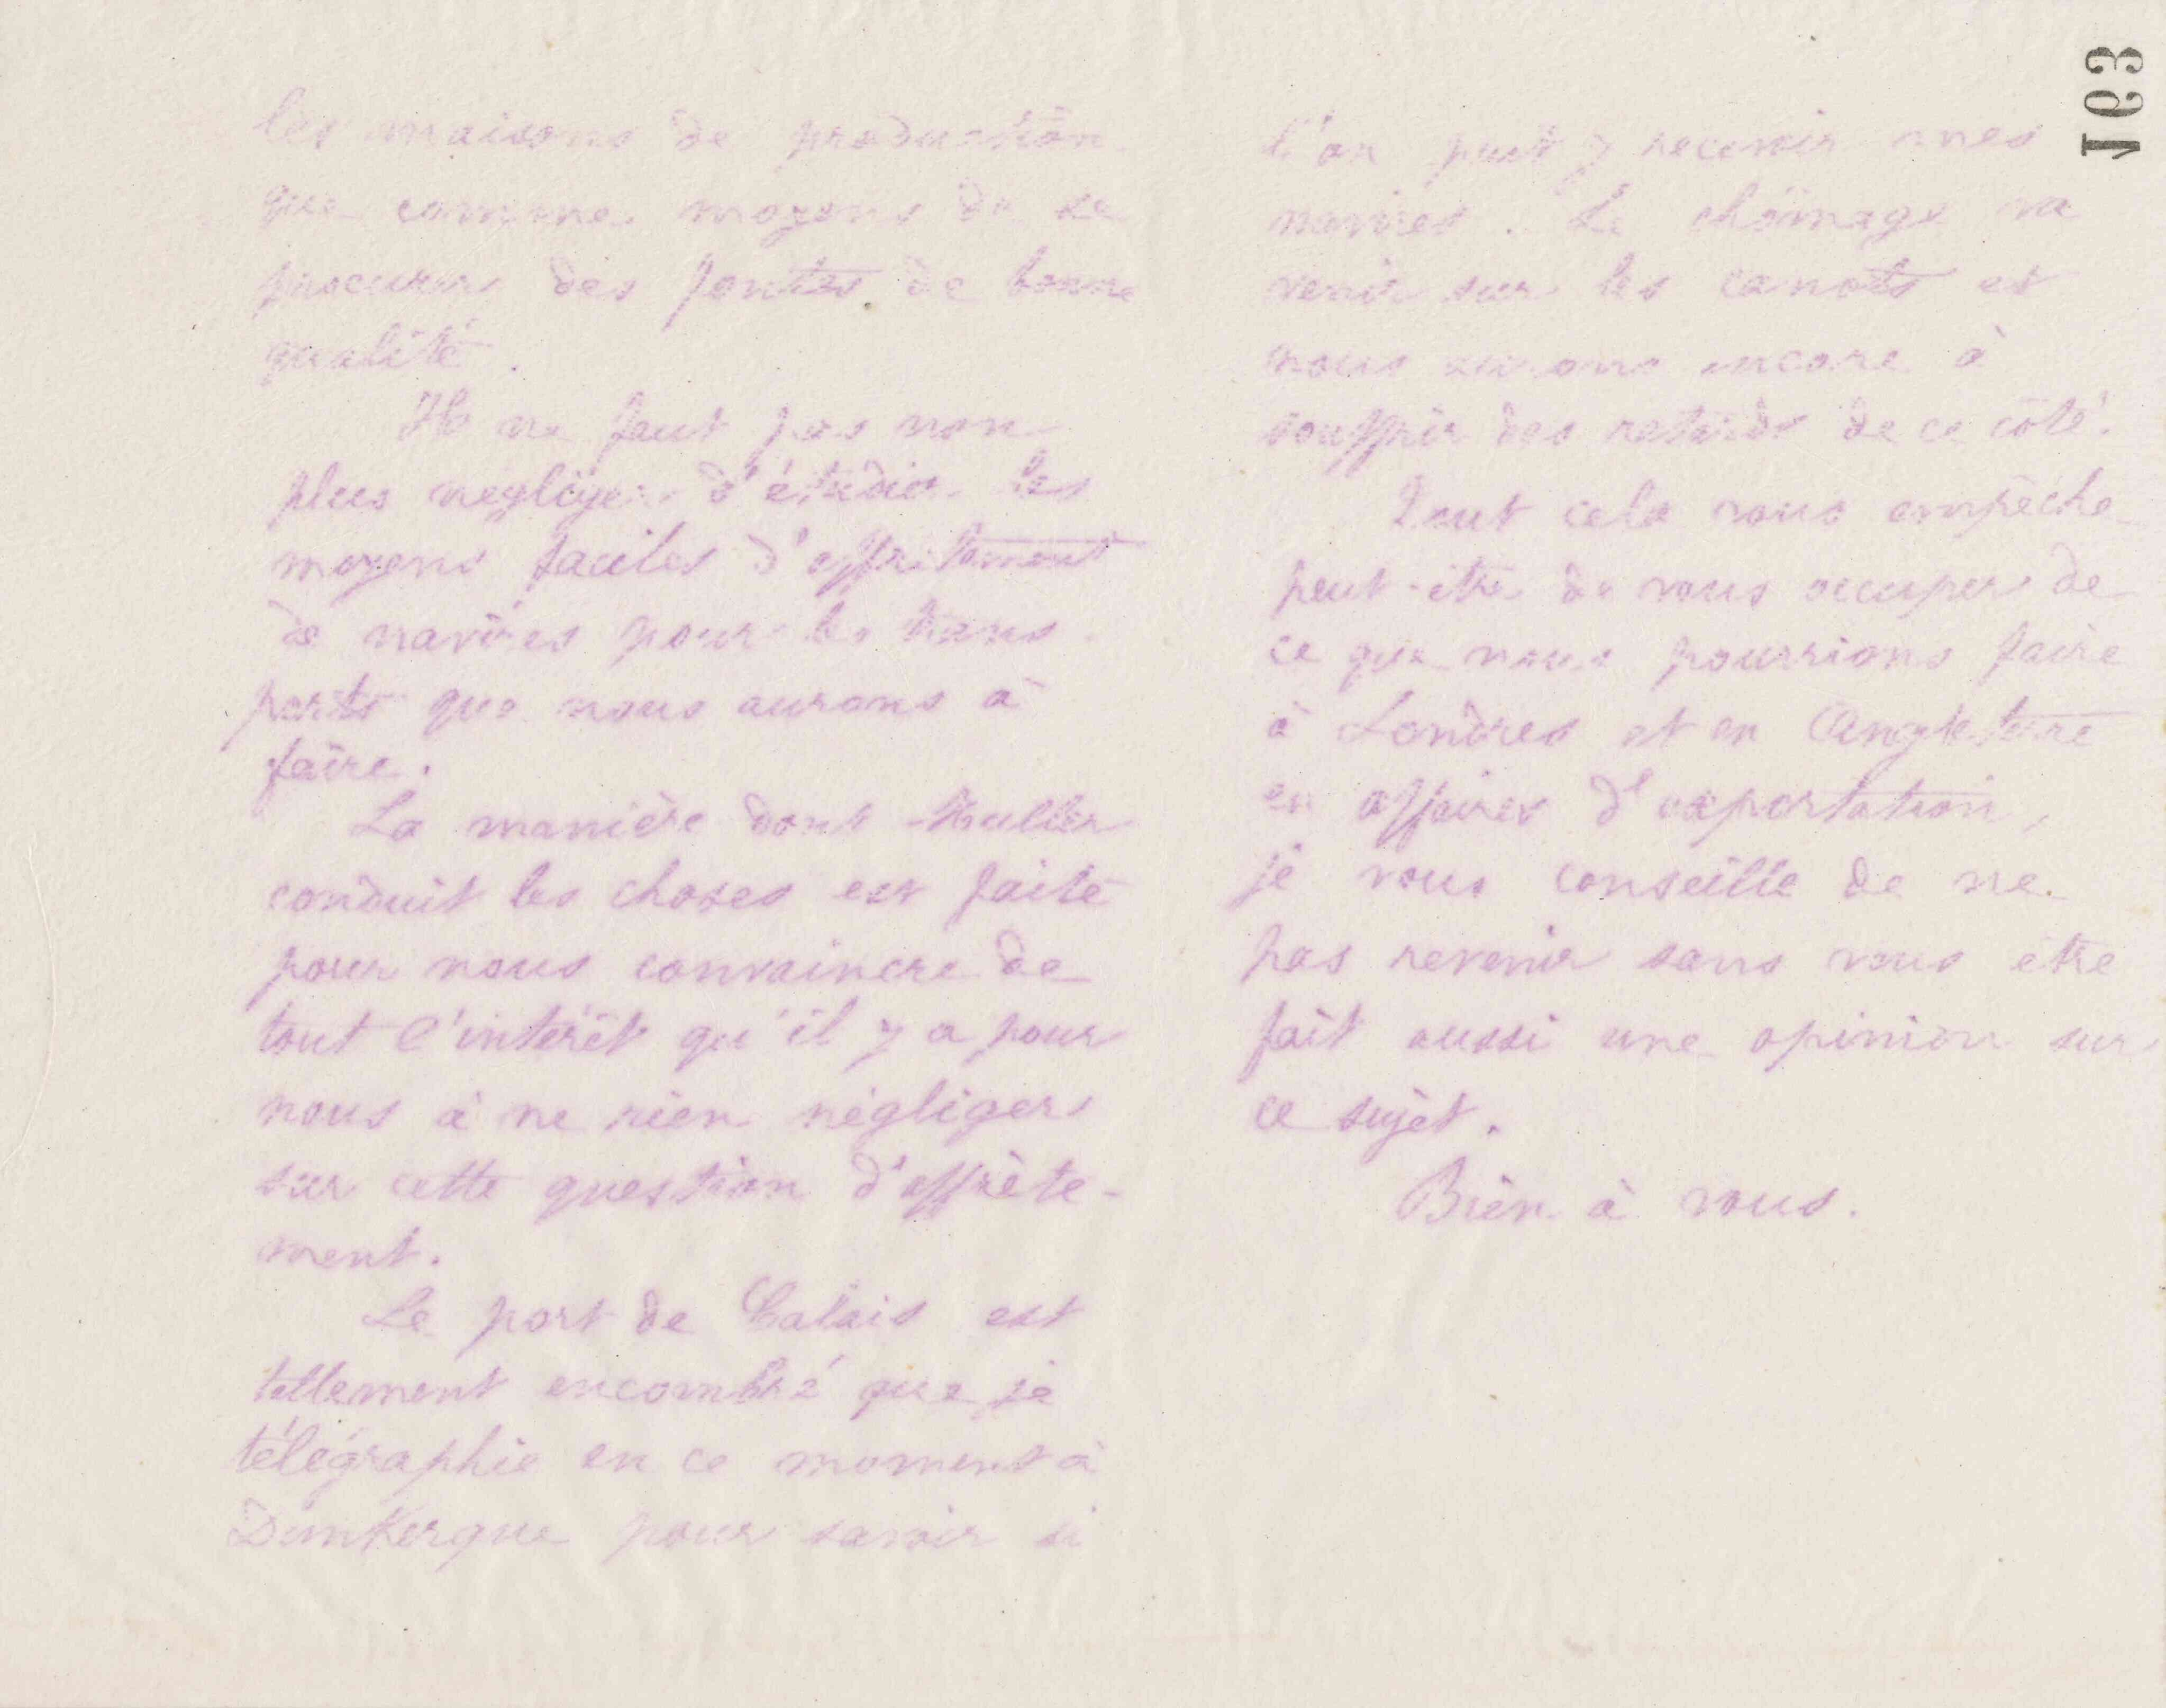 163
les maisons de production
que comme moyens de se
procurer des fontes de bonne
qualité.
Il ne faut pas non
plus négliger d'étudier les
moyens faciles d'affrètement
de navires pour les trans
ports que nous aurons à
faire.
La manière dont Muller
conduit les choses est faite
pour nous convaincre de
tout l'intérêt qu'il y a pour
nous à ne rien négliger
sur cette question d'affrète-
ment.
Le port de Calais est
tellement encombré que je
télégraphie en ce moment à
Dunkerque pour savoir si
l'on peut y recevoir mes
navires. Le chômage va
venir sur les canaux et
nous aurons encore à
souffrir des retards de ce côté.
Tout cela vous empêche
peut-être de vous occuper de
ce que nous pourrions faire
à Londres et en Angleterre
en affaires d'exportation,
je vous conseille de ne
pas revenir sans vous être
fait aussi une opinion sur
ce sujet.
Bien à vous.